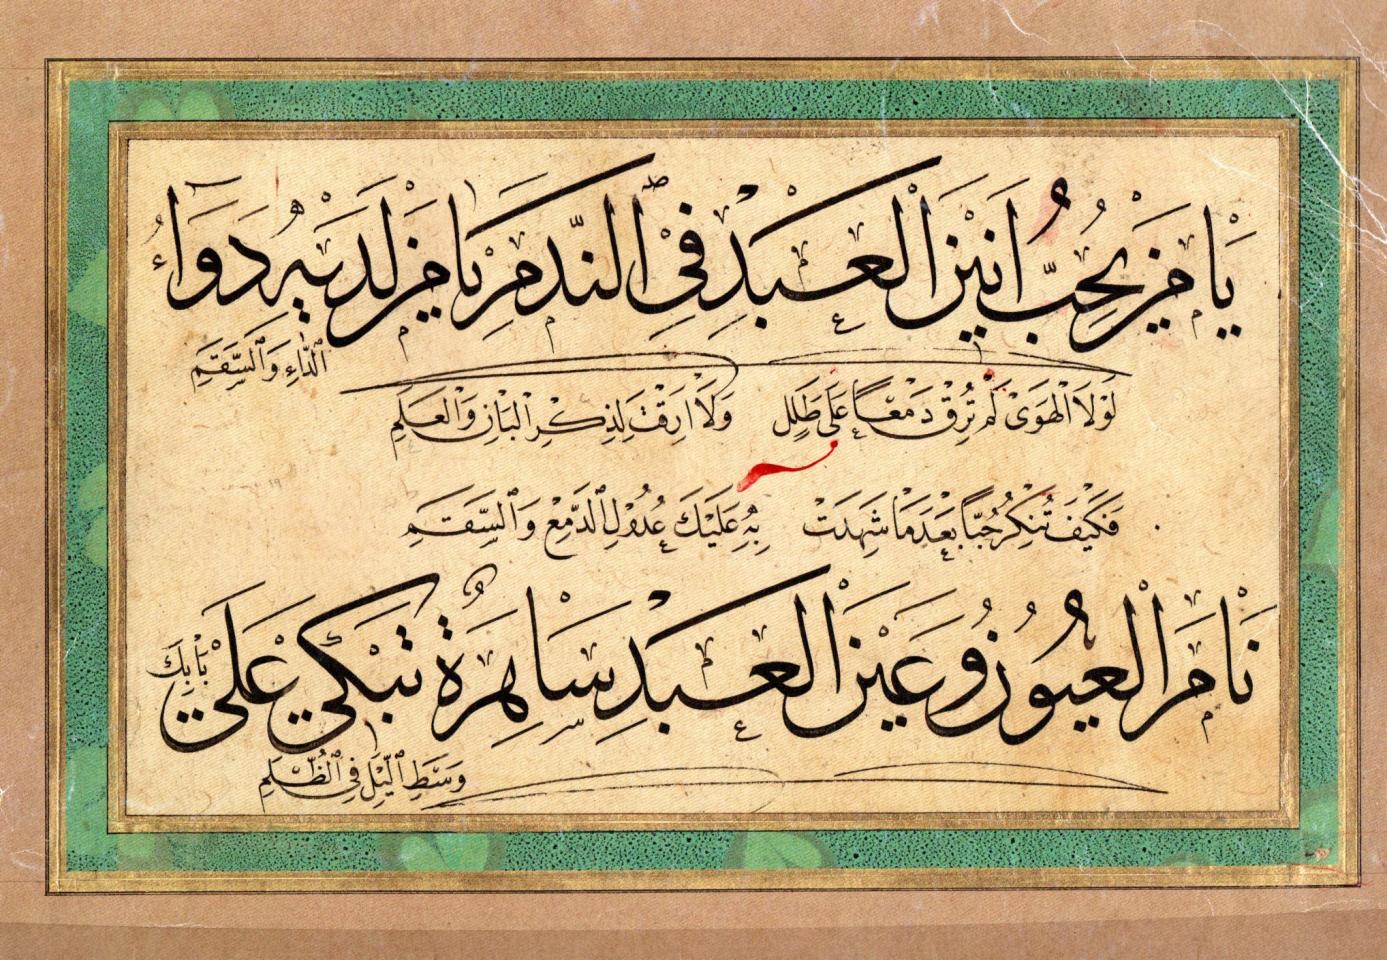 يَا مَنْ يُحِبُّ اَنِينَ الْعَبْدِ فِي النَّدَمِ يَا مَنْ لَدَيْهِ دَوَاءُ
الدَّاءِ وَالسَّقَمِ
لَوْلَا الْهَوَىٰ لَمْ تُرِقْ دَمْعًا عَلَىٰ طَلَلٍ وَلَا اَرِقْتَ لِذِكْرِ الْبَانِ وَالْعَلَمِ
فَكَيْفَ تُنْكِرُ حُبًّا بَعْدَ مَا شَهِدَتْ بِهِ عَلَيْكَ عُدُولُ الدَّمْعِ وَالسَّقَمِ
نَامَ الْعُيُونُ وَعَيْنُ الْعَبْدِ سَاهِرَةٌ تَبْكِي عَلَىٰ بَابِكَ
وَسَطِ اللَّيْلِ فِي الظُّلَمِ